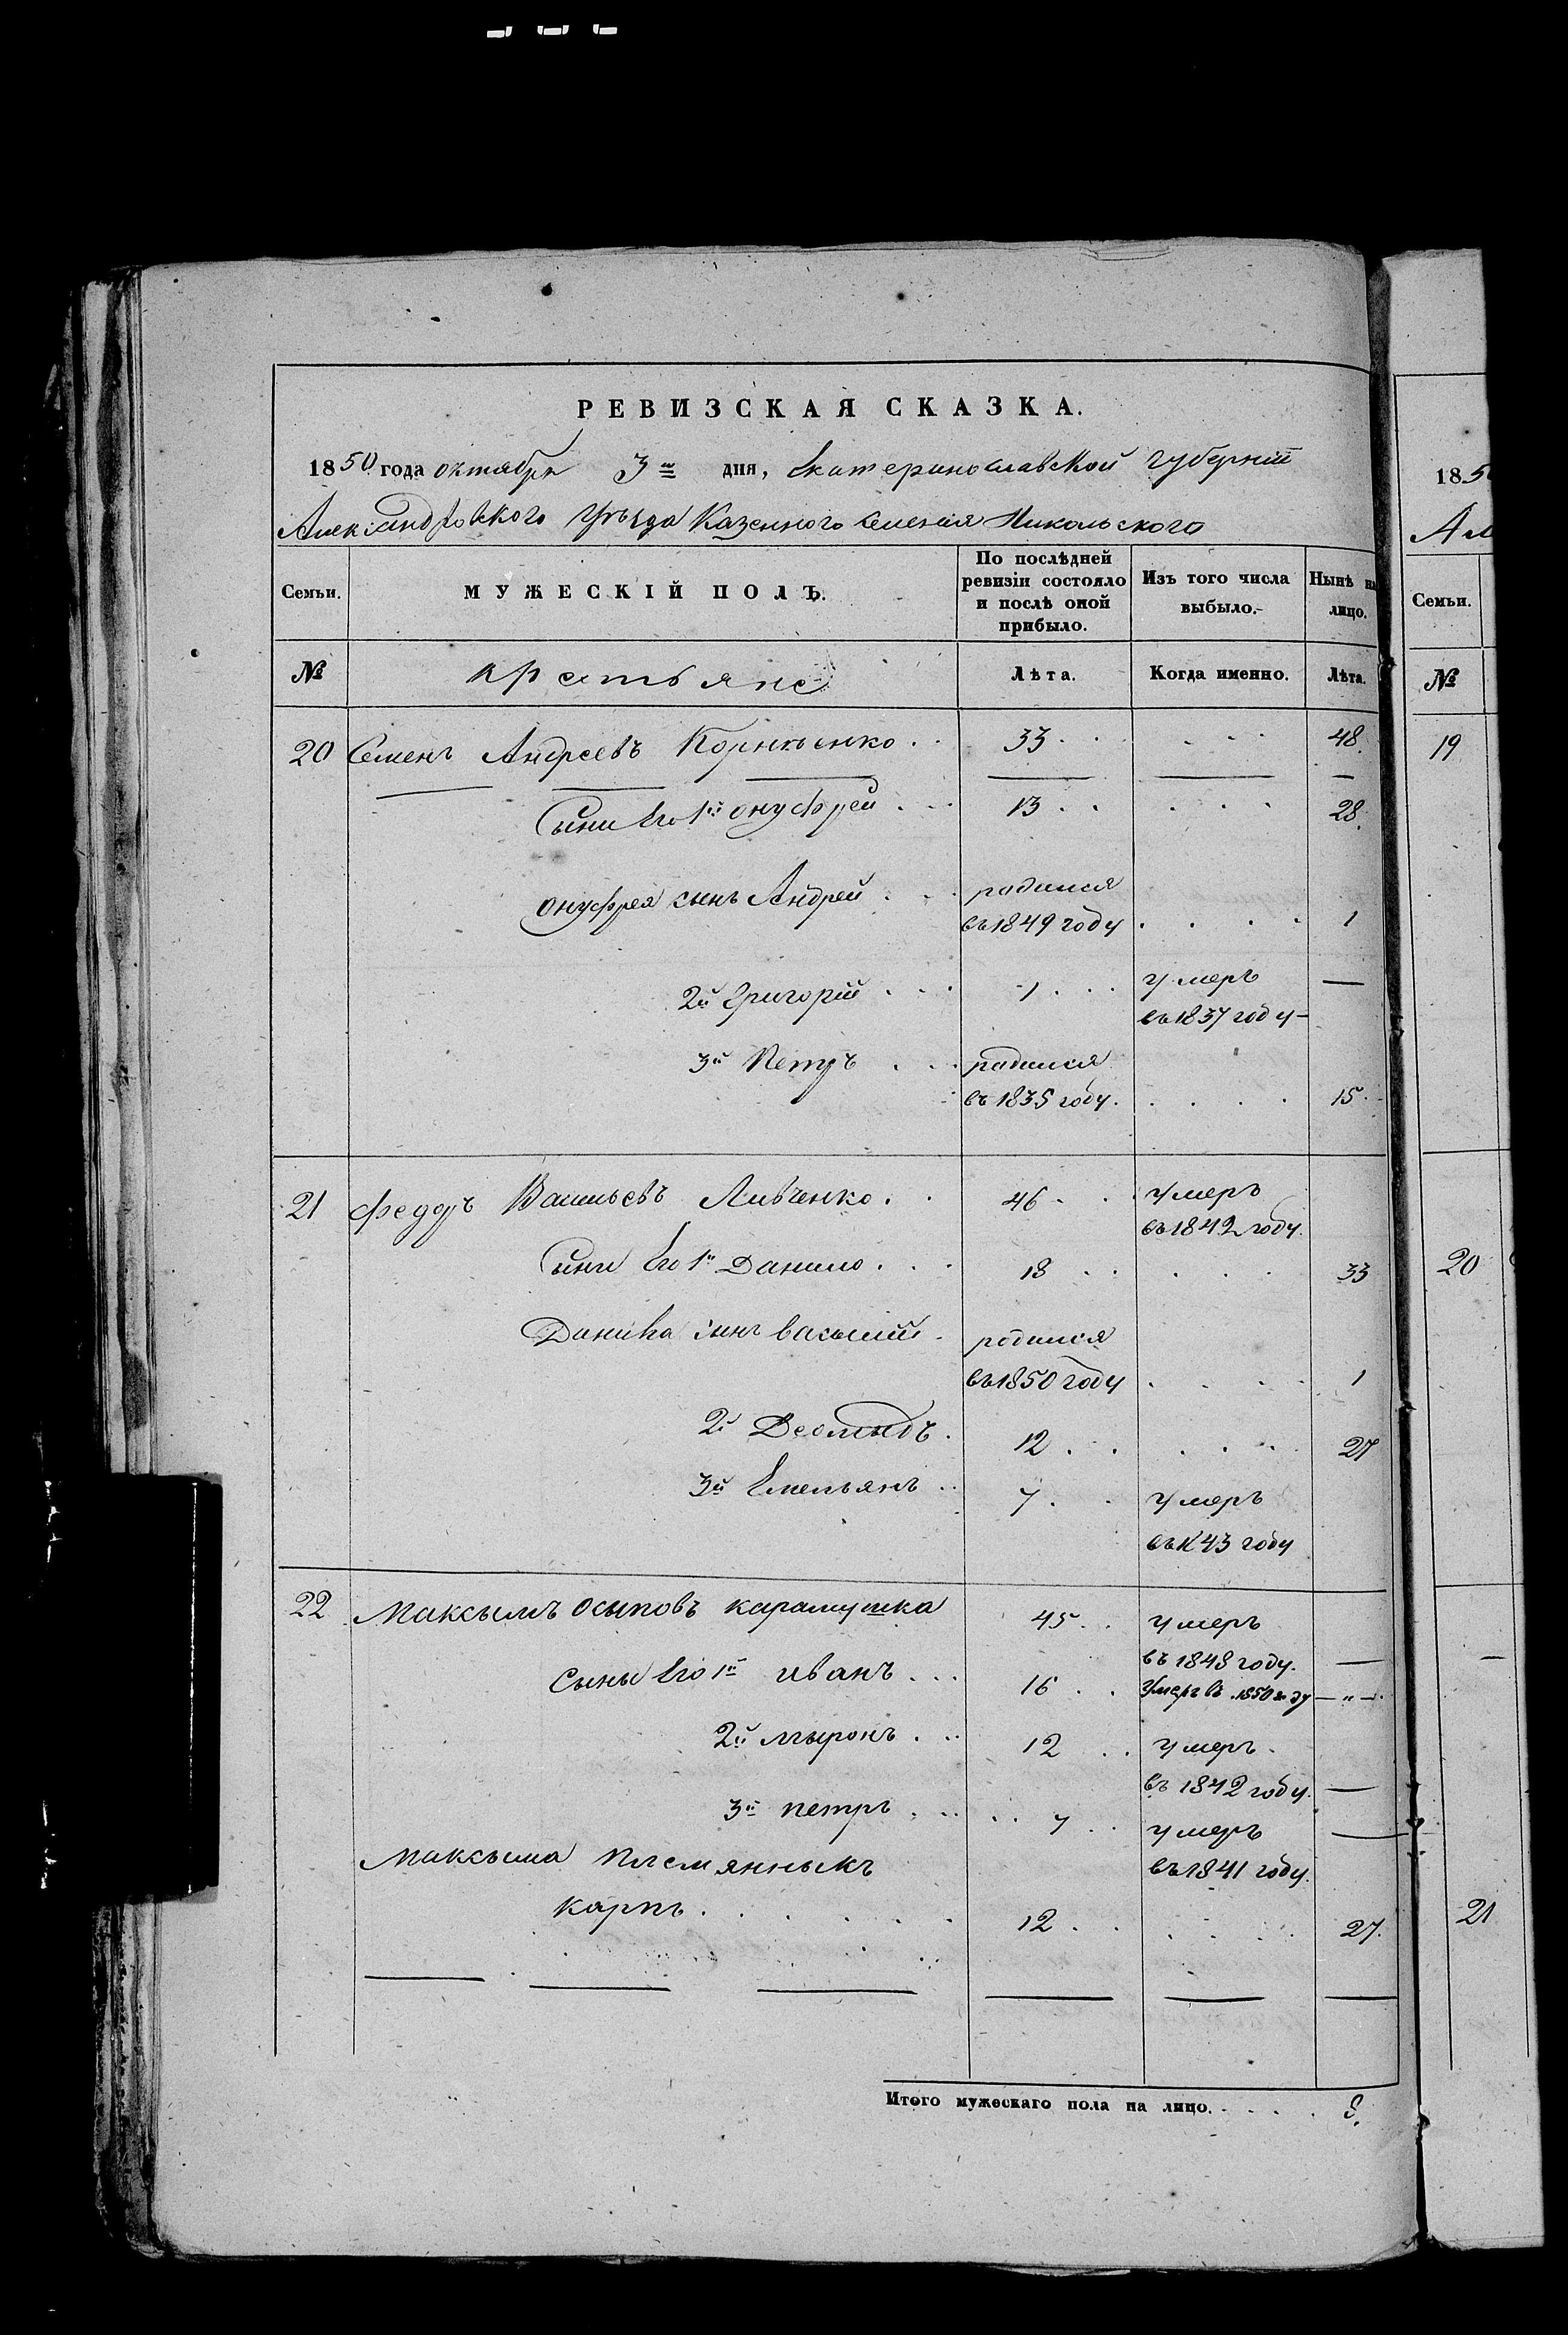 РЕВИЗСКАЯ СКАЗКА.
1850 года октября 3го дня, Екатеринославской губернiи
Александровского уѣзда Казенного Селенiя Никольского
Семьи. МУЖЕСКІЙ ПОЛЪ. По послѣдней ревизіи состояло и послѣ оной прибыло. Изъ того числа выбыло. Нынѣ на лицо.
№ крестьяне Лѣта. Когда именно. Лѣта.
20 Семенъ Андреевъ Корнѣенко . . 33 . . . . . 48.
Сыни Его 1й онуфрей . . . 13 . . . . . 28.
онуфрея сынъ Андрей . . . родился
въ 1849 году . . . . 1
2й Григорiй . . . 1 . . . умеръ —
въ 1837 году —
3й Петръ . . . родился
въ 1835 году . . . . . 15.
21 федоръ Васильевъ Ливченко . . 46 . . . умеръ
въ 1842 году
Сини Его 1й Данило . . . 18 . . . . . 33
Данила сынъ василiй . родился
въ 1850 году . . . . 1
2й Деомидъ . 12 . . . . . 27
3й Емельянъ . . 7 . . умеръ
въ 1843 году
22 Максымъ осыповъ карамушка 45 . . умеръ
въ 1848 году. —
Сыны Его 1й иванъ . . . 16 . . Умеръ въ 1850 году — " —
2й мыронъ . . . 12 . . умеръ.
въ 1842 году. —
3й петръ . . . . . 7 . . умеръ —
въ 1841 году.
Максыма племянныкъ
карпъ . . . . . . 12 . . . . . . 27.
Итого мужескаго пола на лицо. . . . . 8.
1850
Семьи.
№
19
20
21